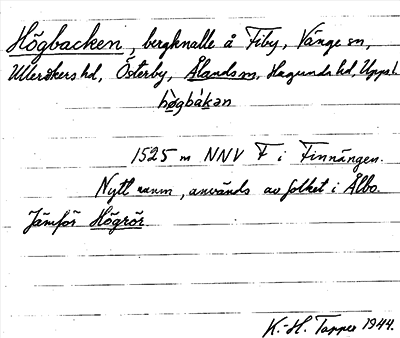 Högbacken, bergknalle å Fiby, Vänge sn,
Ulleråkers hd, Österby, Ålands sn, Hagunda hd, Uppsl.
hö̀gbàkan
1525 m NNV F i Finnängen.
Nytt namn, används av folket i Ålbo.
Jämför Högrör.
K.-H. Tapper 1944.